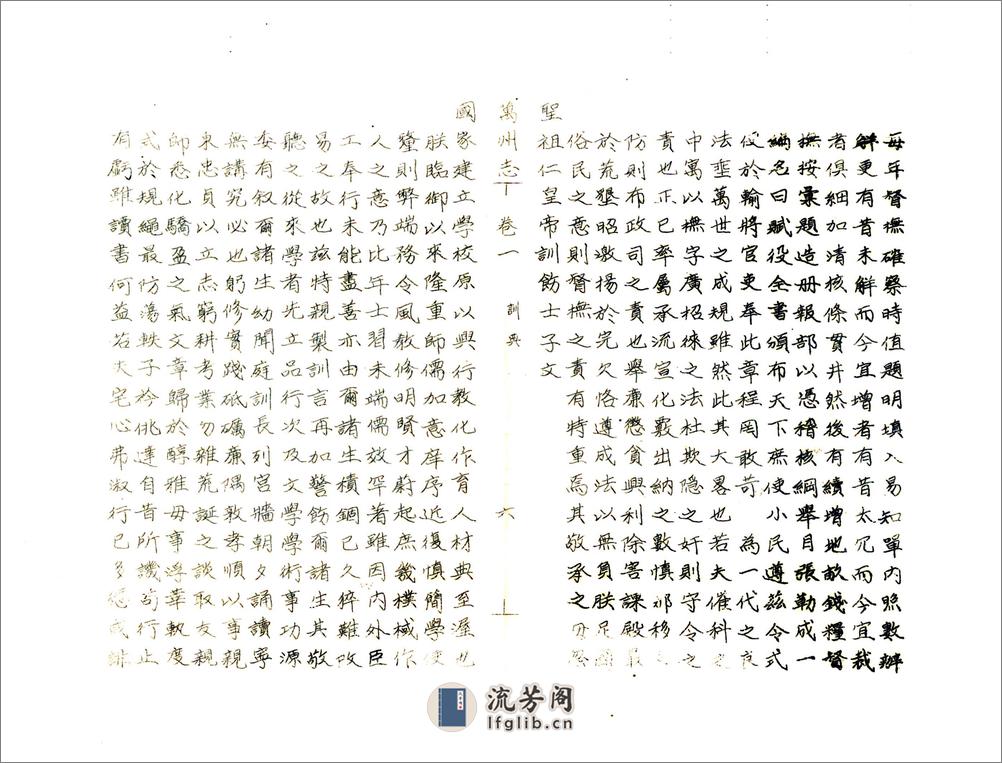 每年督撫確察時值題明填入易知單內照數辦
解更有昔未解而今宜增者有昔太冗而今宜裁
者俱細加清核條貫井然後有續增地畝錢糧督
撫按彙題造冊報部以憑稽核綱舉目張勒成一
編名曰賦役全書頒布天下庶使小民遵茲令式
便於輸將官吏奉此章程罔敢苛 為一代之良
法埀萬世之成規雖然此其大畧也若夫催科之
中寓以撫字廣招徠之法杜欺隐之奸則守令之
責也正已率屬承流宣化覈出納之數慎那移之
防則布政司之責也舉廉懲貪興利除害課殿最
於荒墾昭激揚於完欠恪遵成法以無負朕足國
俗民之意則督撫之責有特重焉其敬承之毋忽
聖祖仁皇帝訓飭士子文
萬州志 卷一 訓典 六
國家建立學校原以興行教化作育人材典至渥也
朕臨御以來隆重師儒加意庠序近復慎簡學使
釐則弊端務令風教修明賢才蔚起庶幾樸棫作
人之意乃比年士習未端儒效罕著雖因內外臣
工奉行未能盡善亦由爾諸生積錮已久猝難改
易之故也兹特親製訓言再加警飭爾諸生其敬
聽之從來學者先立品行次及文學學術事功源
委有叙爾諸生幼聞庭訓長列宮牆朝夕誦讀寧
無講究必也躬修實踐砥礪廉隅敦孝順以事親
秉忠貞以立志窮耕考業勿雜荒誕之談取友親
師悉化驕盈之氣文章歸於醇雅毋事浮華軌度
式於規繩最防蕩軼子衿佻達自昔所譏苟行止
有虧雖讀書何益若夫宅心弗淑行已多愆或誹
流芳阁
lfglib.cn